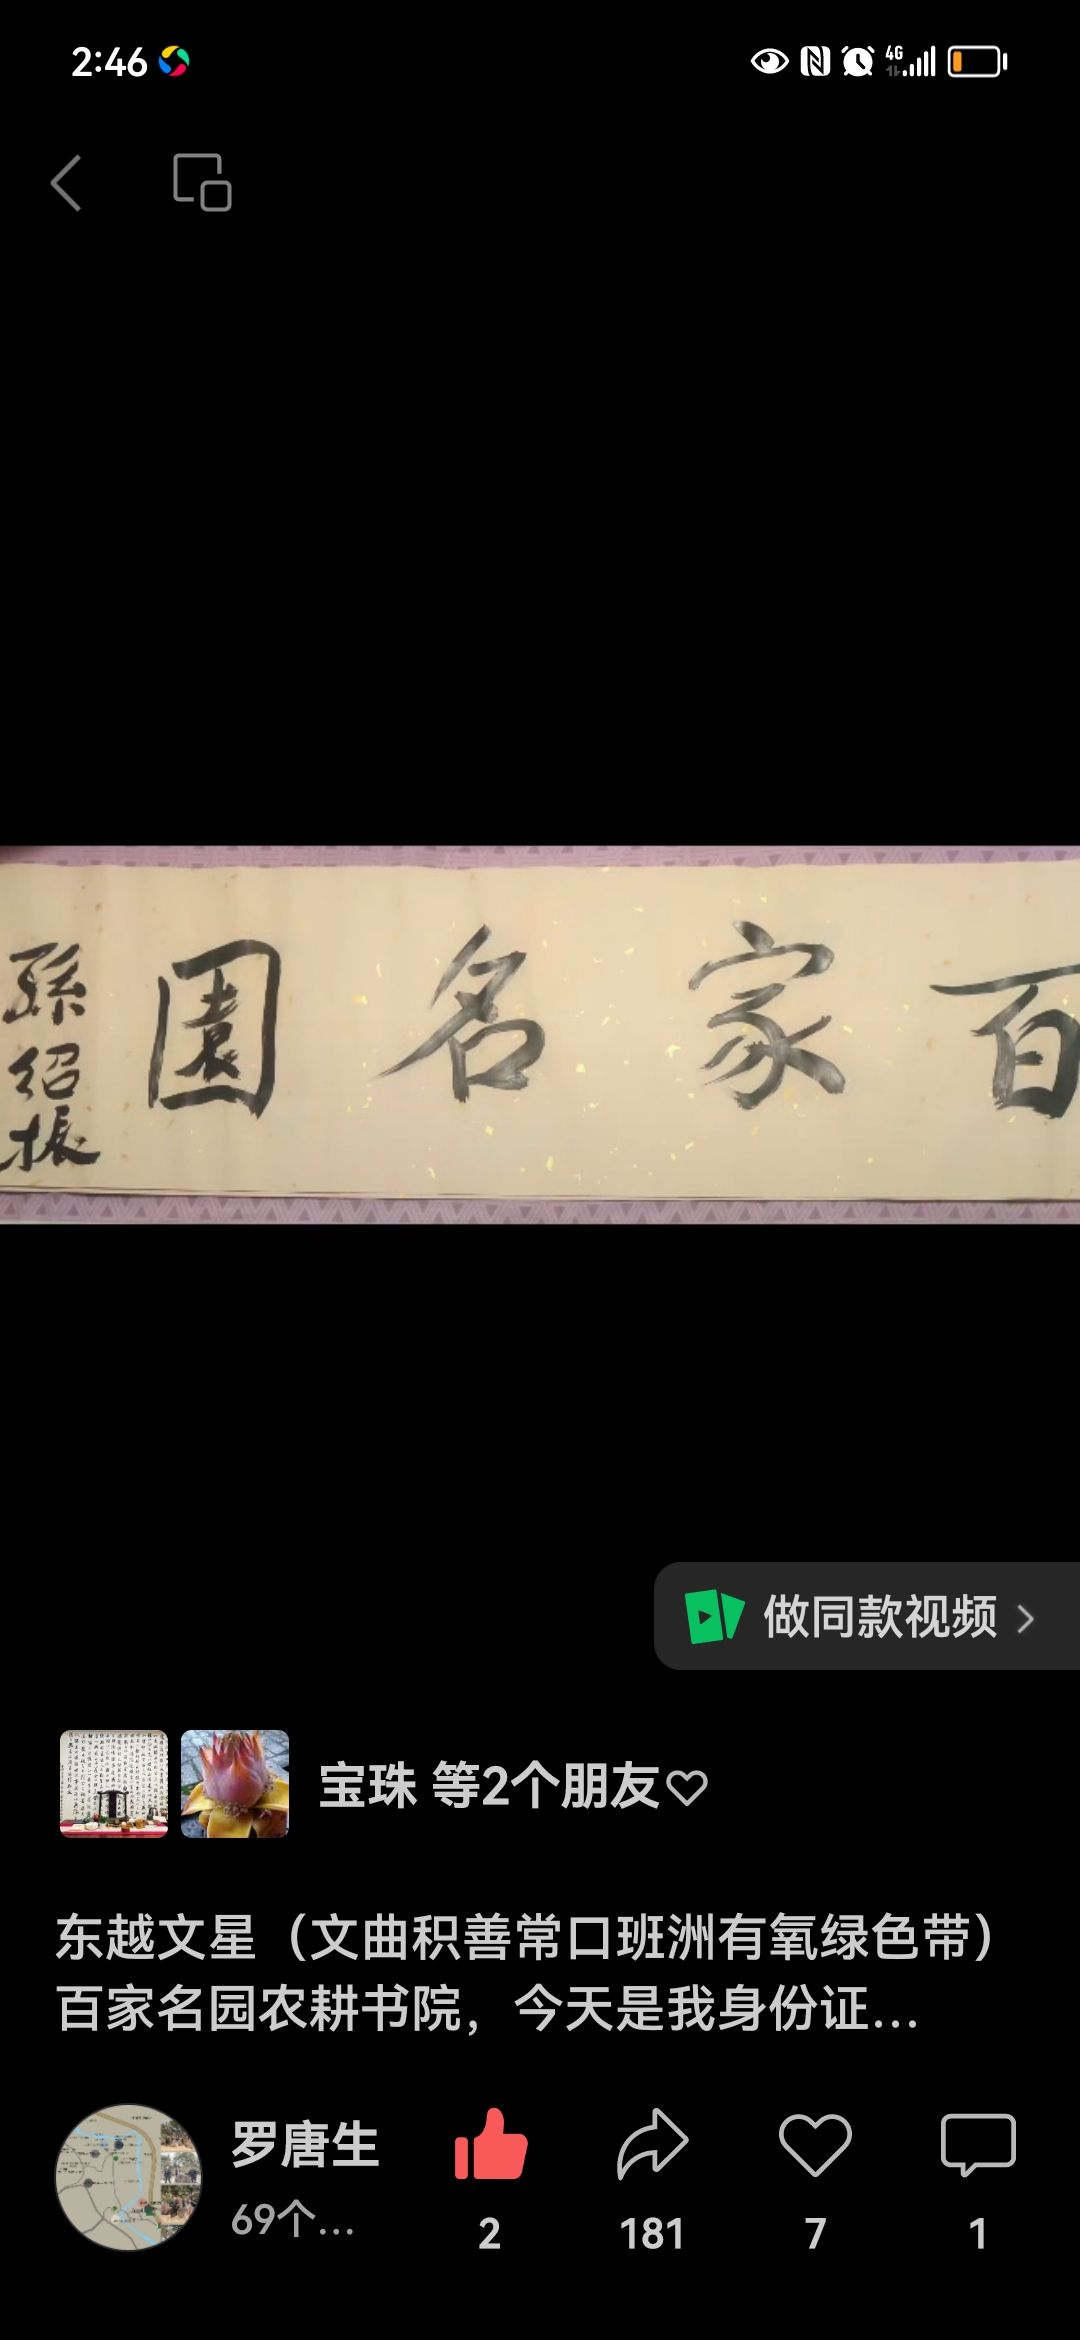 2:46
4G
百家名園
孫紹振
做同款视频
宝珠 等2个朋友
东越文星（文曲积善常口班洲有氧绿色带）
百家名园农耕书院，今天是我身份证...
罗唐生
69个...
2
181
7
1